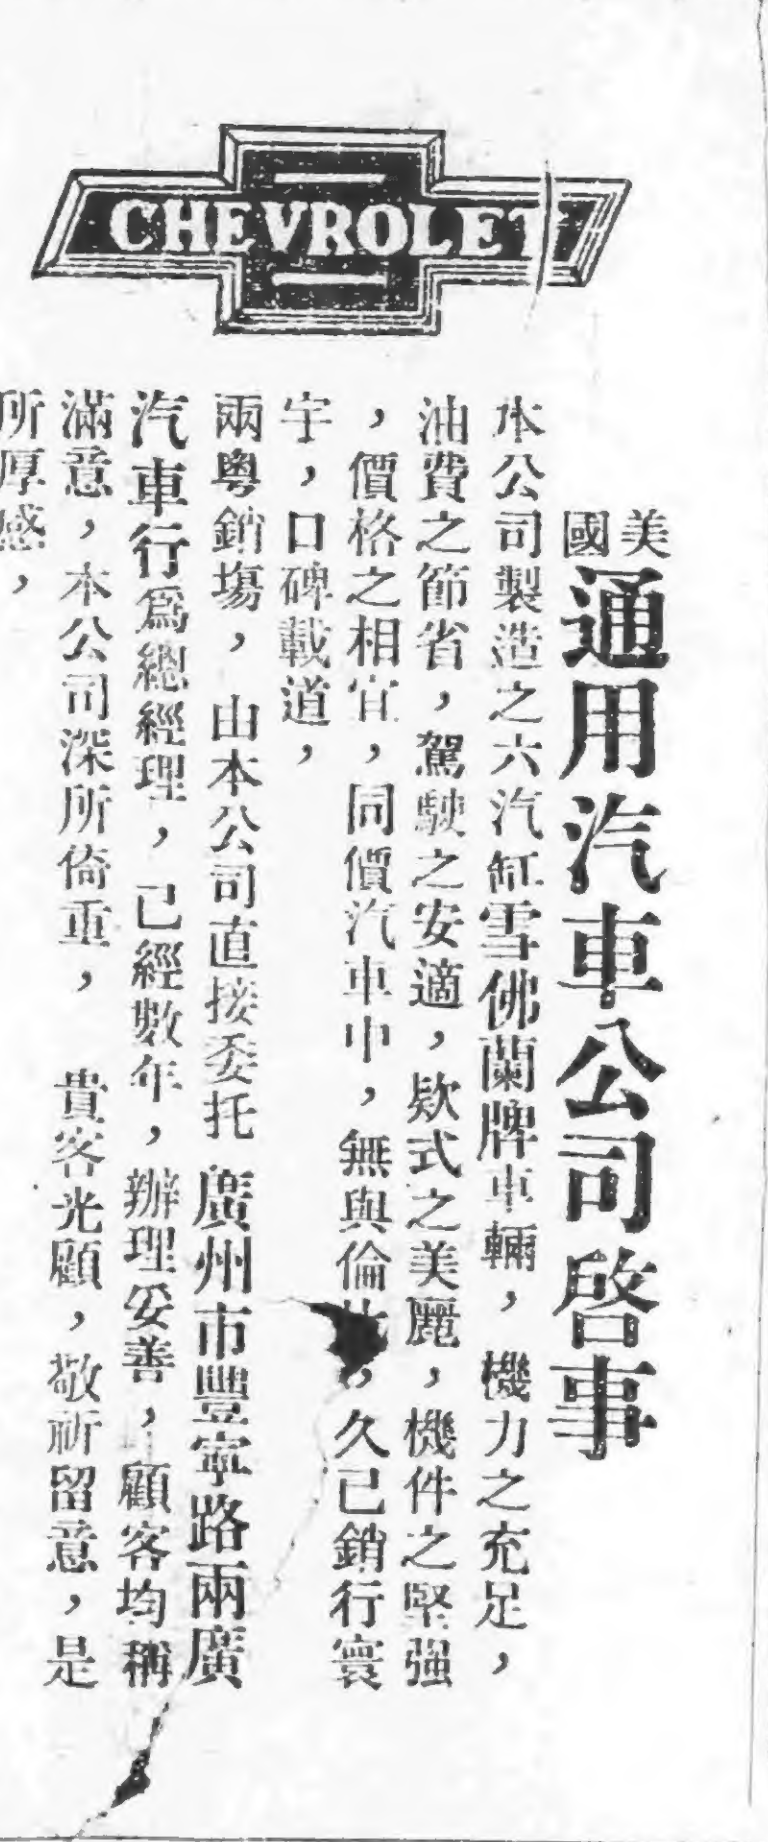 CHEVROLET
美國通用汽車公司啓事
本公司製造之六汽缸雪佛蘭牌車輛，機力之充足，
油費之節省，駕駛之安適，欵式之美麗，機件之堅强
，價格之相宜，同價汽車中，無與倫比，久已銷行寰
宇，口碑載道，
兩粵銷塲，由本公司直接委托廣州市豐寧路兩廣
汽車行爲總經理，已經數年，辦理妥善，顧客均稱
滿意，本公司深所倚重，貴客光顧，敬祈留意，是
所厚感，